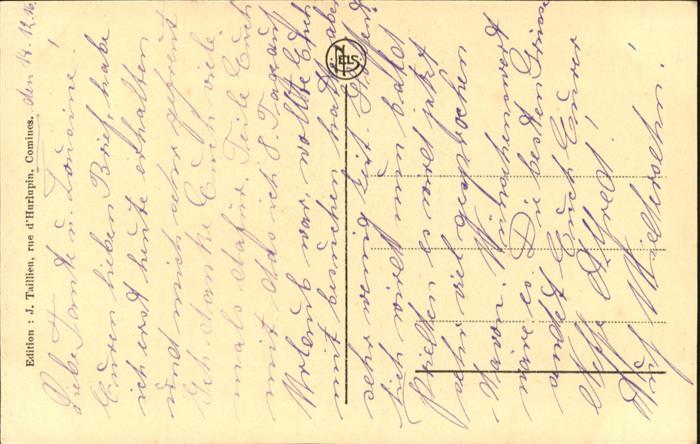 Edition : J. Taillieu, rue d'Hurlupin, Comines.
den 14.12.16
Liebe Tante u. Cousine!
Euren lieben Brief habe
ich erst heute erhalten
und mich sehr gefreut
Ich danke Euch viele
mals dafür. Teile Euch
mit daß ich 8 Tage auf
Urlaub war, wollte Euch
mit besuchen hatte aber
sehr wenig Zeit.
sich wird nun bald
es wird jetzt
sehr viel gesprochen
davon. Wünschenswert
wäre es. Die besten Grüße
sendet Euch Euer
Neffe Alfred!
Auf Wiedersehn!